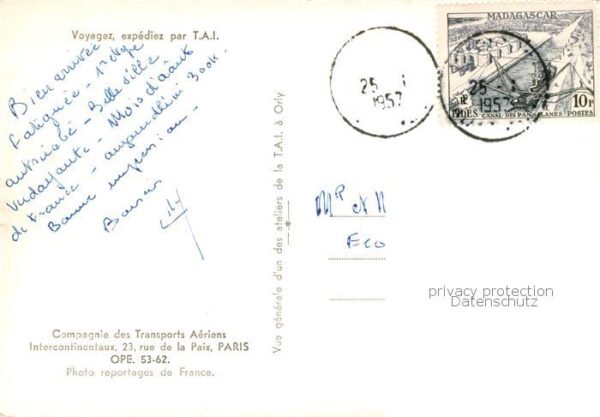 Voyagez, expédiez par T.A.I.
Bien arrivée
Fatiguée - 1re étape
- Belle ville
- Mois d'août
de France - 300k.
Bonne impression -
Baisers
MADAGASCAR
25 1
1957
25
1957
FIDES 10F
CANAL DES PANGALANES POSTES
Mr et M
Vue générale d'un des ateliers de la T.A.I. à Orly
privacy protection
Datenschutz
Compagnie des Transports Aériens
Intercontinentaux, 23, rue de la Paix, PARIS
OPE. 53-62.
Photo reportages de France.